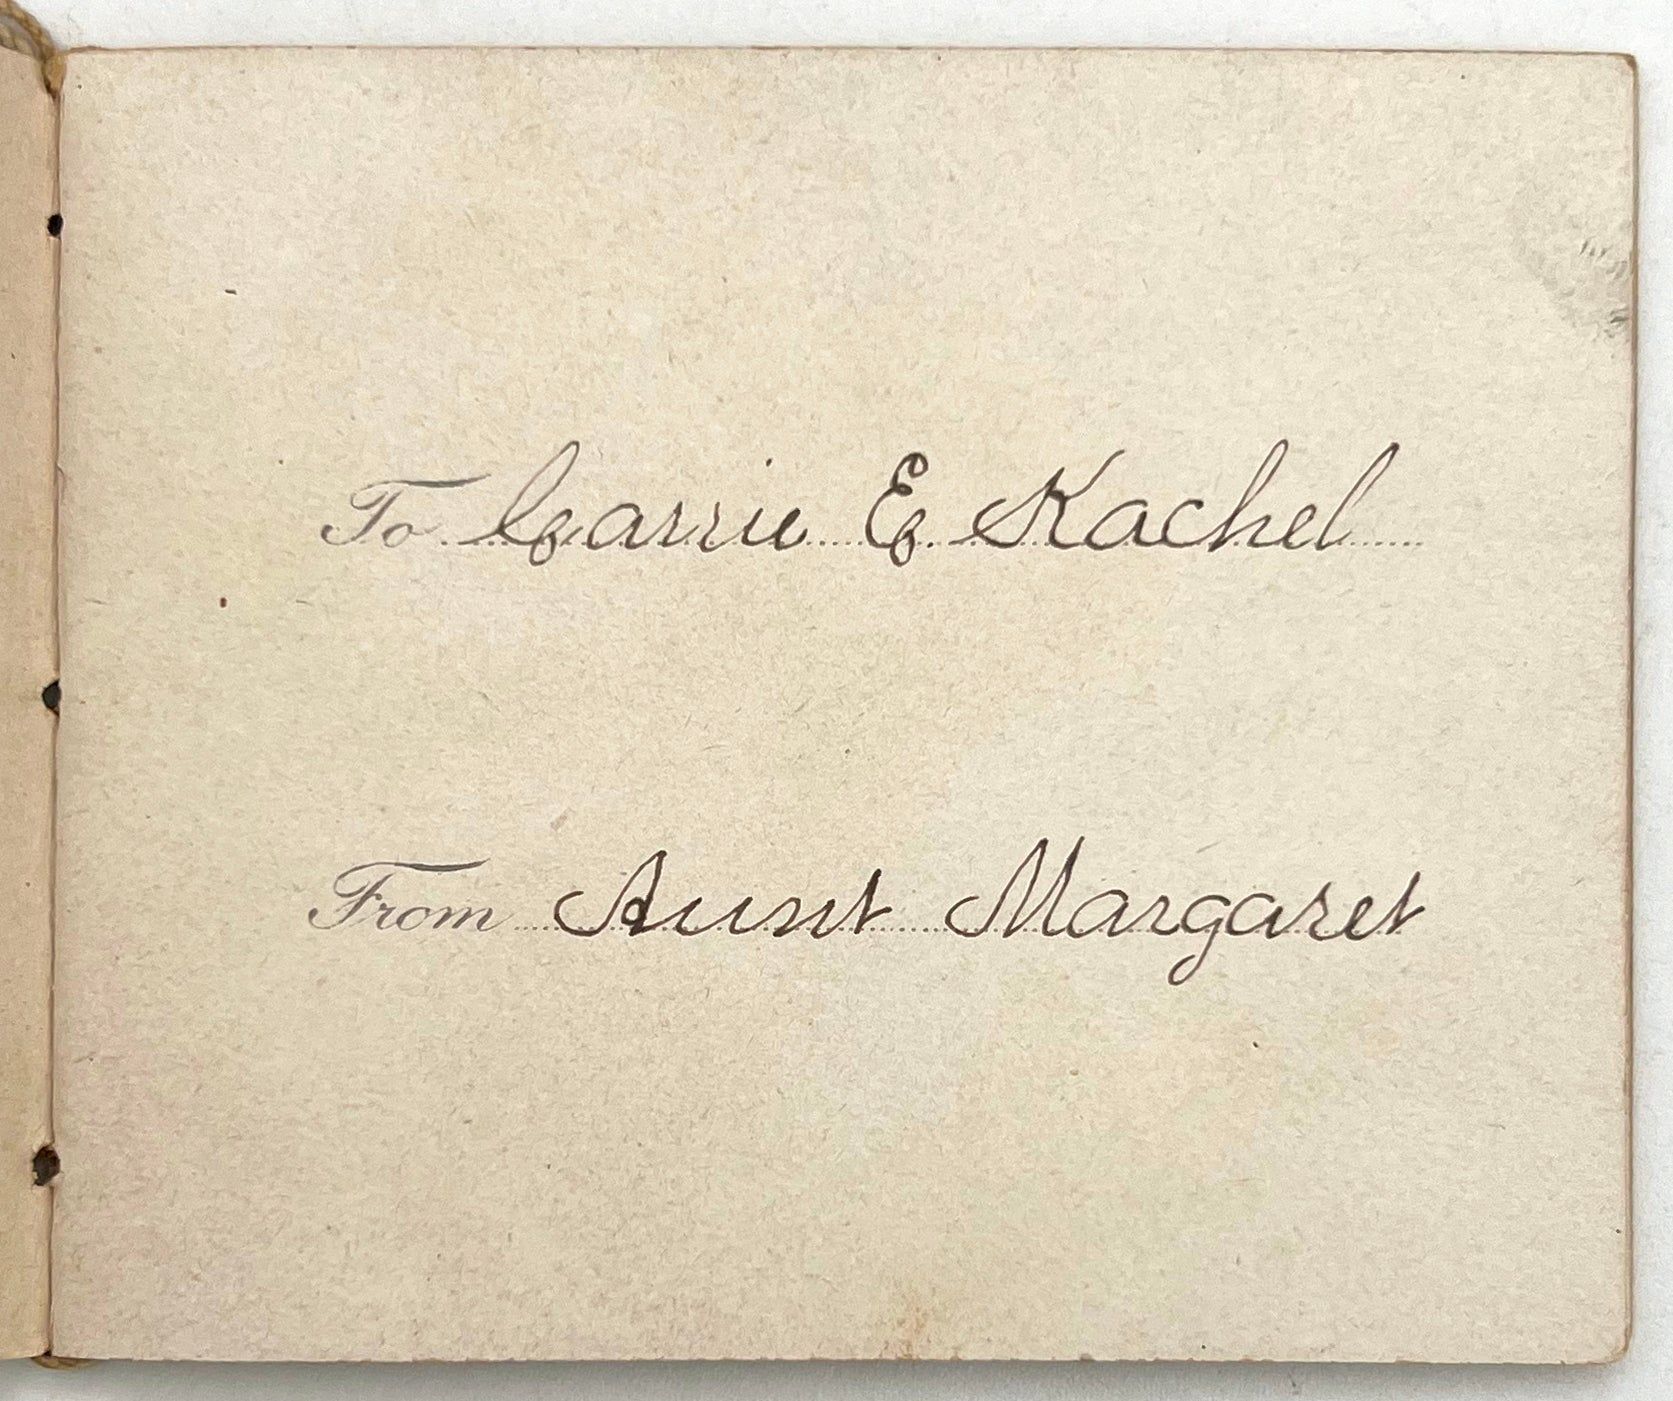 To Carrie E Kachel
From Aunt Margaret